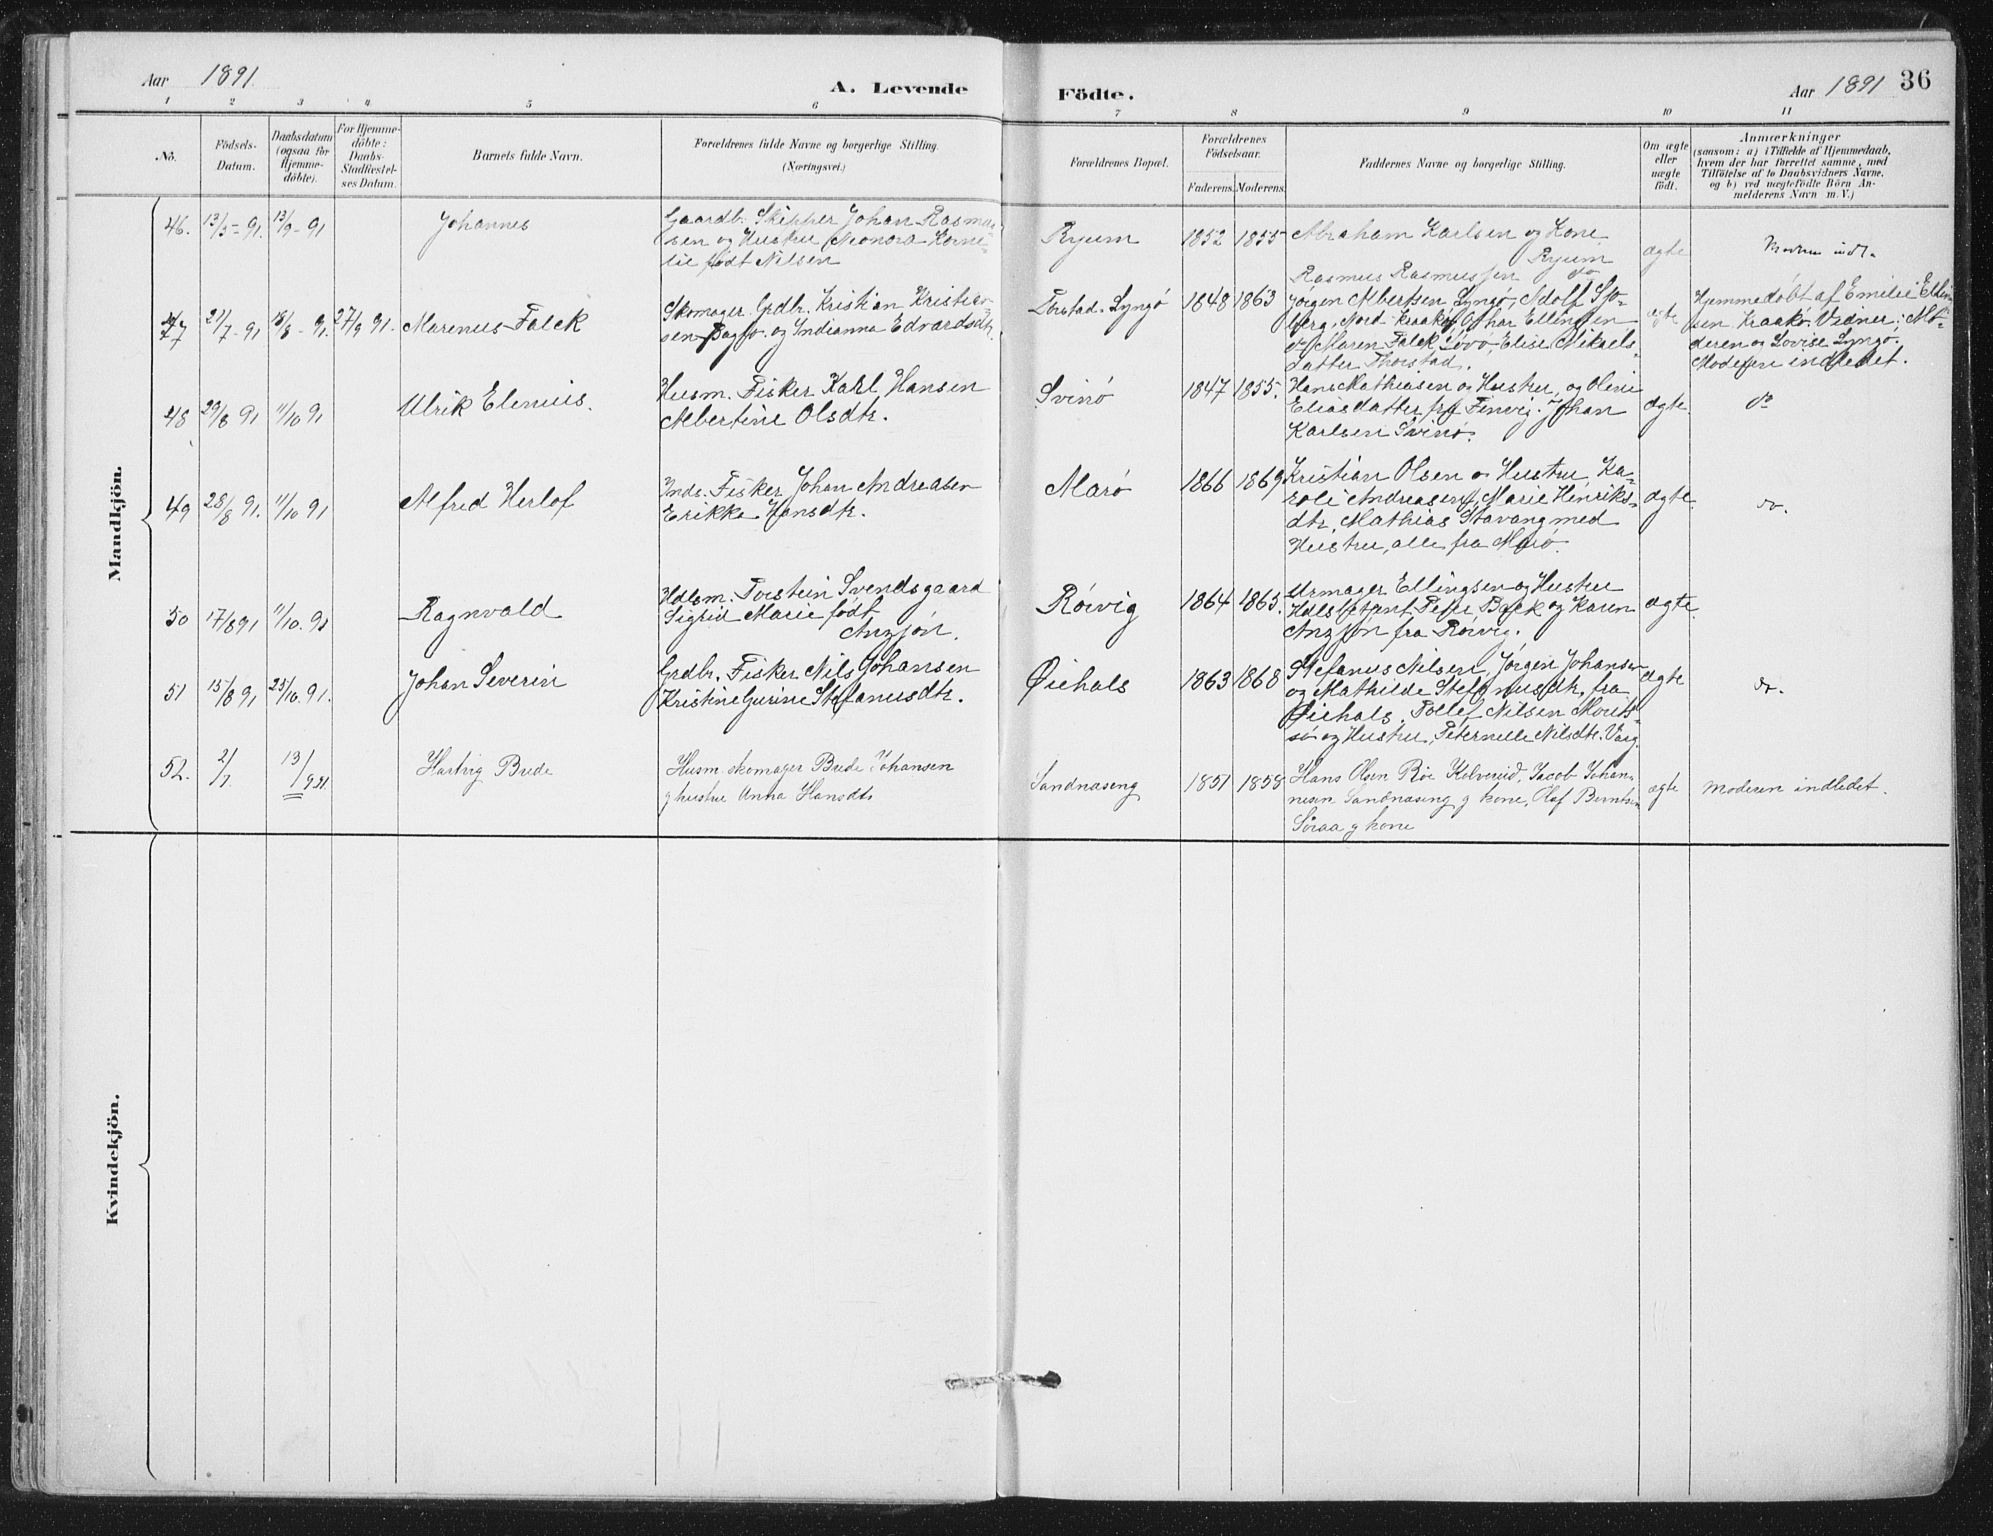 Aar 1891.
A. Levende
Födte.
Aar 1891
36
1 2 3 4 5 6 7 8 9 10 11
No.
Födsels-
Datum.
Daabsdatum
(ogsaa for
Hjemme-
döbte).
For Hjemme-
döbte:
Daabs-
Stadfæstel-
ses Datum.
Barnets fulde Navn.
Forældrenes fulde Navne og borgerlige Stilling.
(Næringsvei.)
Forældrenes Bopæl.
Forældrenes
Födselsaar.
Faderens. Moderens.
Faddernes Navne og borgerlige Stilling.
Om ægte
eller
uægte
födt.
Anmærkninger
(saasom: a) i Tilfælde af Hjemmedaab,
hvem der har forrettet samme, med
Tilföielse af to Daabsvidners Navne,
og b) ved uægtefödte Börn An-
melderens Navn m. V.)
Mandkjön.
46. 13/5-91. 13/9-91
Johannes
Gaardb. Skipper Johan Rasmus-
sen og Hustru Neonora Korne-
lie født Nilsen
Ryum
1852 1855
Abraham Karlsen og Kone
Ryum
Rasmus Rasmussen do
ægte
Moderen indl.
47 21/7-91 18/8-91. 27/9 91.
Marenus Falck
Skomager Grdbr. Kristian Kristian-
sen og Indianna Edvardsdtr.
Torstad-Lyngø
1848 1863
Jørgen Albertsen Lyngø, Adolf Sjø-
berg, Nord Kraakø Othar Ellingsen
do Maren Falck Løvø, Elise Mikaels-
datter Thorstad.
ægte
Hjemmedøbt af Emilie Elling-
sen Kraakø. Vidner: Mo-
deren og Lovise Lyngø.
Moderen indledet.
48 29/8 91 11/10 91
Ulrik Elenius.
Husm. Fisker Karl Hansen
Albertine Olsdtr.
Svinø
1847 1855.
Hans Mathiasen og Hustru, og Oline
Eliasdatter fra Finvig. Johan
Karlsen Svinø.
ægte.
do
49 28/8 91. 11/10 91
Alfred Herlof
Inds. Fisker Johan Andreasen
Erikka Hansdtr.
Marø
1866 1869
Kristian Olsen og Hustru, Ka-
roli Andreasen, Marie Henriks-
dtr, Mathias Stavang med
Hustru, alle fra Marø.
ægte.
do.
50 17/8 91 11/10. 91
Ragnvald
Hdlsm. Torstein Svendsgaard
Sigrid Marie født
Anzjøn.
Rörvig
1864 1865.
Urmager Ellingsen og Hustru
Hdlsbetjent Petter Bøek og Karen
Anzjøn fra Rörvig.
ægte.
51 15/8 91 25/10. 91.
Johan Severin
Grdbr. Fisker Nils Johansen
Kristine Gurine Stefanusdtr.
Øiehals
1863 1868
Stefanus Nilsen, Jørgen Johansen
og Mathilde Stefanusdtr, fra
Øiehals. Tollef Nilsen Morits-
sø og Hustru, Peternelle Nilsdtr. Varg
ægte
do.
52. 2/1. 13/9 91
Hartvig Brede
Husm. skomager Brede Johansen
og hustru Anna Hansdtr
Sandnaseng
1851 1858
Hans Olsen Røe Kolvereid, Jacob Johan-
nesen Sandnaseng og kone, Olaf Berntsen
Søraa og kone
ægte
Moderen indledet.
Kvindekjön.